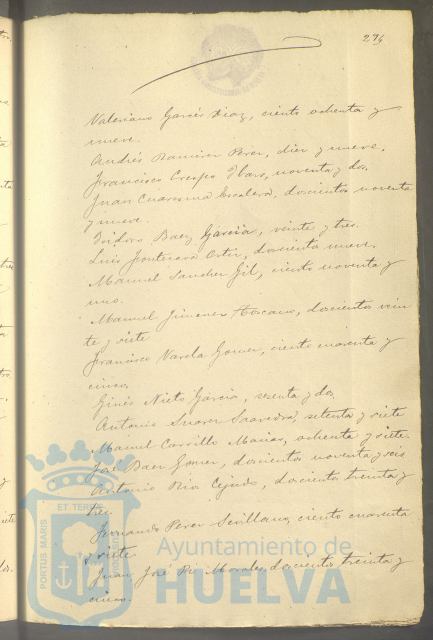 274
Valeriano Garcés Diaz, ciento ochenta y
nueve.
Andrés Ramirez Perez, diez y nueve.
Francisco Crespo Haro, noventa y dos.
Juan Cuaresma Escalera, doscientos noventa
y nueve.
Isidoro Baez García, veinte y tres.
Luis Ortiz, doscientos nueve.
Manuel Sanchez Gil, ciento noventa y
uno.
Manuel Jimenez doscientos vein
te y siete
Francisco Varela Gomez, ciento cuarenta y
cinco.
Ginés Nieto Garcia, sesenta y dos,
Antonio Suarez Saavedra, setenta y siete
Manuel Carrillo Macias, ochenta y siete.
José Baez Gomez, doscientos noventa y seis
Antonio Rios Cejudo, doscientos treinta y
tres.
Fernando Perez Sevillano, ciento cuarenta
y siete.
Juan José Morales, doscientos treinta y
cinco.
PORTUS MARIS ET TERRÆ CUSTODIA
Ayuntamiento de
HUELVA